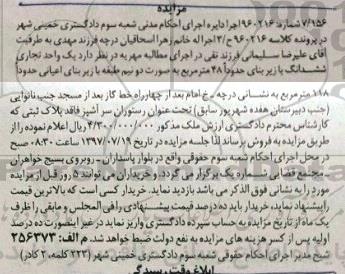 مزایده
۷/۱۵۶ شماره ۹۶۰۲۱۶ اجرا دایره اجرای احکام مدنی شعبه سوم دادگستری خمینی شهر
در پرونده کلاسه ۹۶۰۲۱۶ ح/۳ اجرا له خانم زهرا اسحاقیان درچه فرزند مهدی به طرفیت
آقای علیرضا سلیمانی فرزند نقی در اجرای مطالبه مهریه در نظر دارد یک واحد تجاری
ششدانگ با زیر بنای حدوداً ۴۸ مترمربع به صورت دو نیم طبقه با زیر بنای اعیانی حدوداً
۱۱۸ مترمربع به نشانی درچه - خ امام بعد از چهارراه خط گاز بعد از مسجد جنب نانوایی
(جنب دبیرستان هفده شهریور سابق) تحت عنوان رستوران سر آشپز فاقد پلاک ثبتی که
کارشناس محترم دادگستری ارزش ملک مذکور ۴/۳۰۰/۰۰۰/۰۰۰ ریال اعلام نموده را از
طریق مزایده به فروش برساند لذا جلسه مزایده در تاریخ ۱۳۹۷/۰۷/۱۹ ساعت ۰۸:۳۰ صبح
در محل اجرای احکام شعبه سوم حقوقی واقع در بلوار پاسداران - روبروی بسیج خواهران
- مجتمع قضایی شماره یک برگزار می گردد. و خریداران می توانند ۵ روز قبل از مزایده
مورد را به نشانی فوق الذکر می باشد بازدید نماید. خریدار کسی است که بالاترین قیمت
را پیشنهاد نماید، خریدار باید ده درصد قیمت پیشنهادی را فی المجلس و مابقی را ظرف
یک ماه از تاریخ مزایده به حساب سپرده دادگستری واریز نماید در غیر اینصورت ده درصد
اولیه پس از کسر هزینه های مزایده به نفع دولت ضبط خواهد شد. م الف: ۲۵۶۳۷۳
شیخ مدیر اجرای احکام حقوقی شعبه سوم دادگستری خمینی شهر (۲۲۳ کلمه، ۲ کادر)
ابلاغ وقت رسیدگی